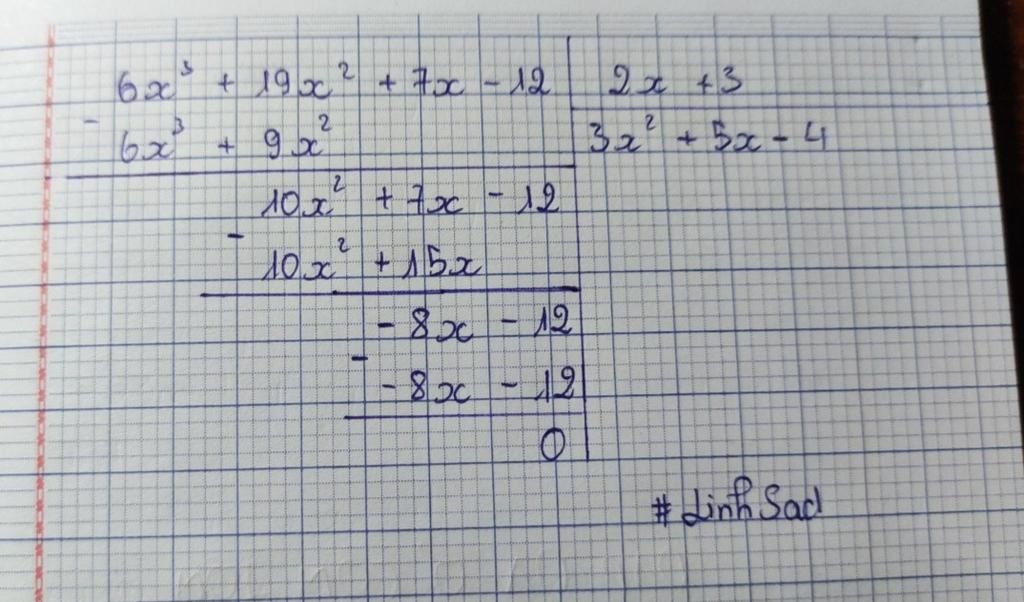 6x³ + 19x² + 7x - 12 | 2x + 3
- 6x³ + 9x² | 3x² + 5x - 4
10x² + 7x - 12
- 10x² + 15x
- 8x - 12
- - 8x - 12
0
# Linh Sad